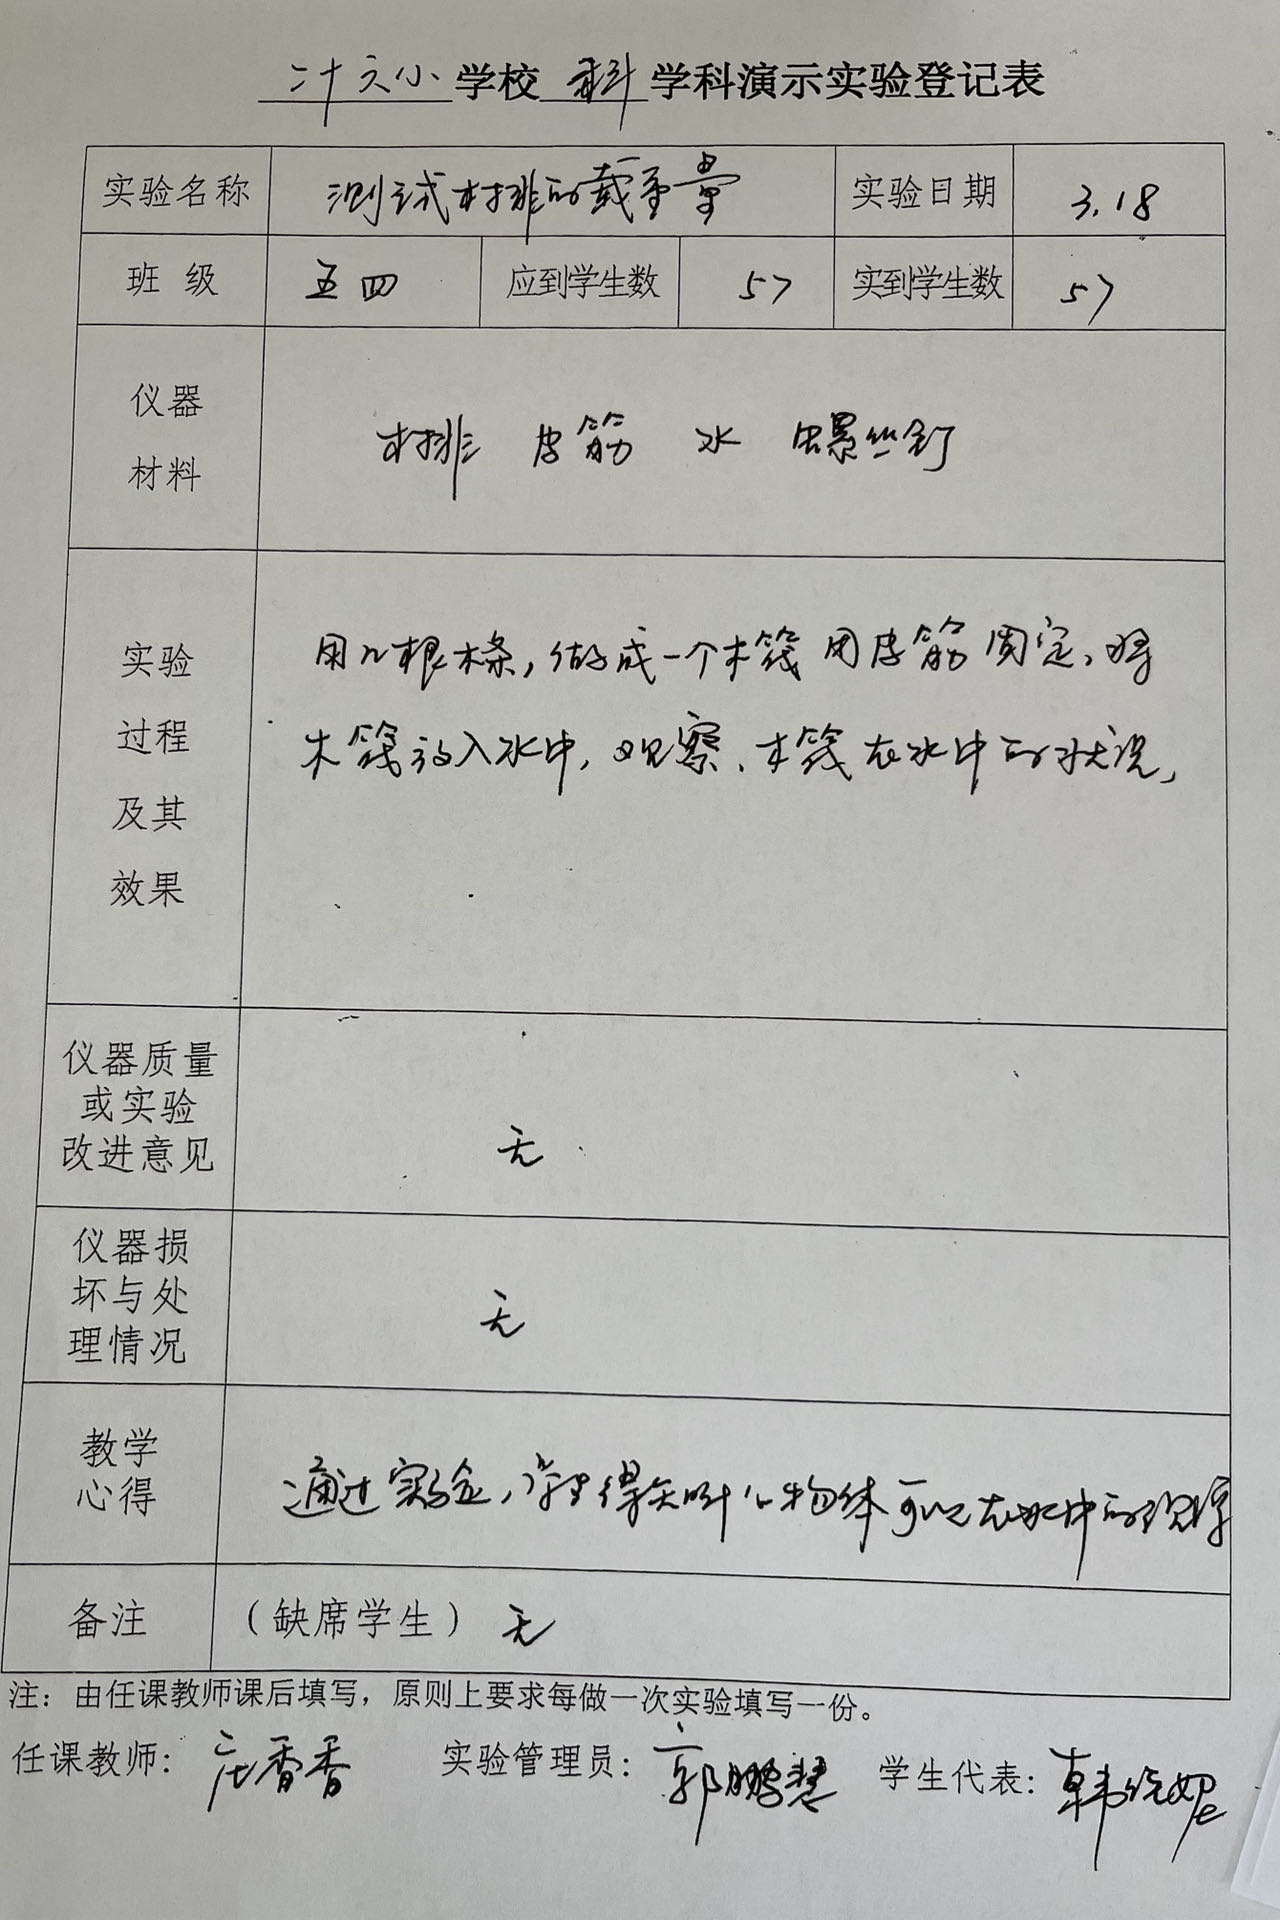 二十六小学校 科 学科演示实验登记表
实验名称 测试木排的载重量 实验日期 3.18
班 级 五四 应到学生数 57 实到学生数 57
仪器
材料
木排 皮筋 水 螺丝钉
实验
过程
及其
效果
用几根木条,做成一个木筏用皮筋固定,将
木筏放入水中,观察、木筏在水中的状况,
仪器质量
或实验
改进意见
无
仪器损
坏与处
理情况
无
教学
心得
通过实验,学生得知 物体可以在水中
备注 (缺席学生) 无
注:由任课教师课后填写,原则上要求每做一次实验填写一份。
任课教师: 庄香香 实验管理员: 郭鹏慧 学生代表: 韩妮